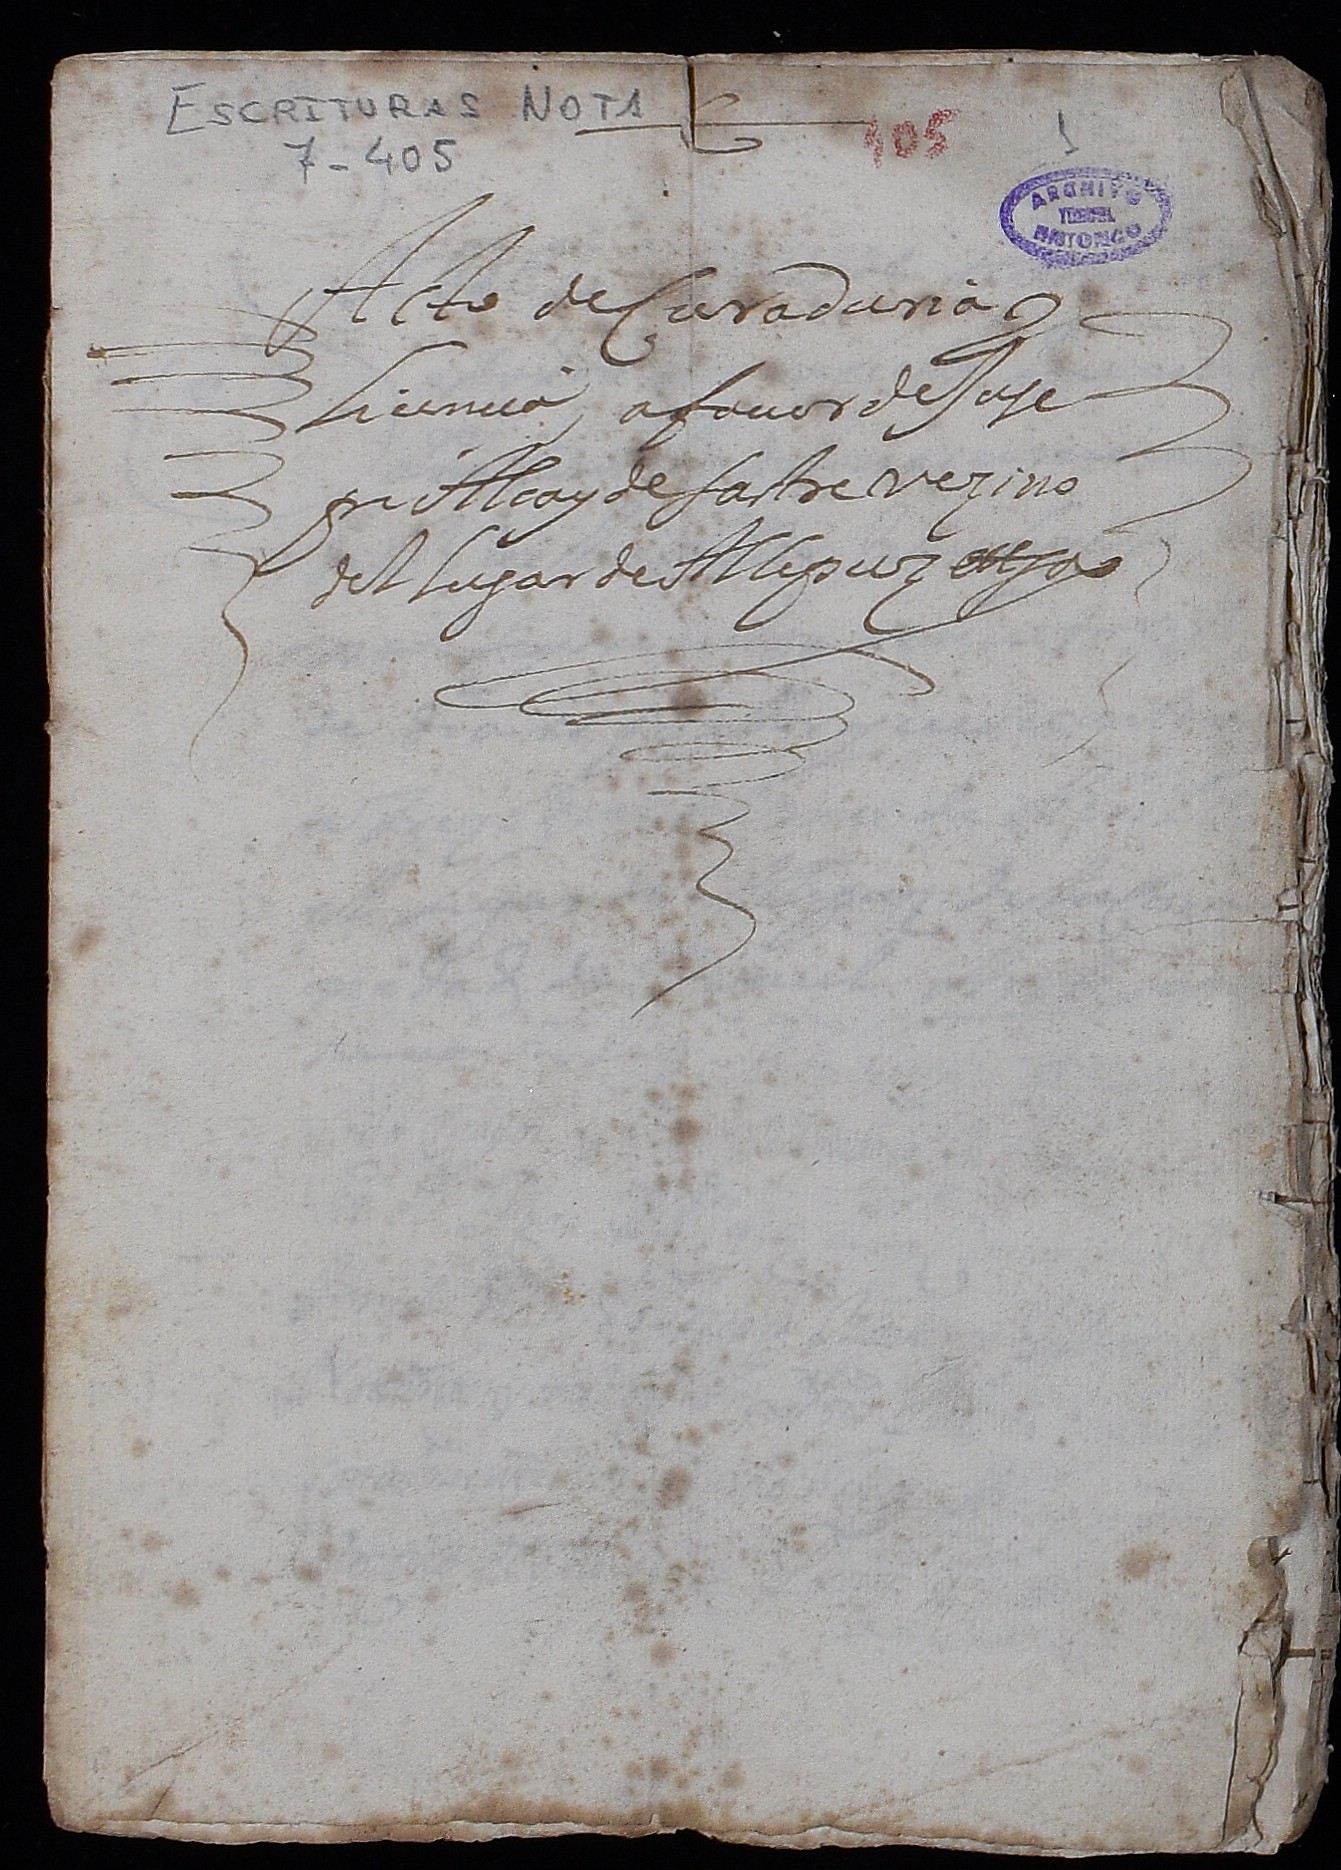 ESCRITURAS NOTA
7-405
405
1
ARCHIVO
HISTORICO
Acto de Curaduria y
Licencia, a fauor de Juse
pe Alcayde sastre vezino
del lugar de Allepuz